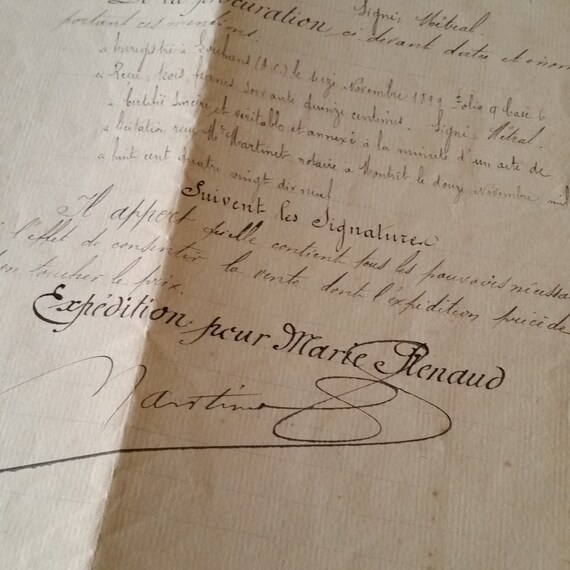 Signé: Métral.
De la procuration, ci devant datée et énon
portant ces mentions.
" Enregistré à Louhans (A.C.) le onze Novembre 1899 Folio 9 Case 6
" Reçu: trois francs soixante quinze centimes. Signé: Métral.
" Certifié sincère et véritable et annexé à la minute d'un acte de
" licitation reçu Me Martinet notaire à Montret le douze Novembre mil
" huit cent quatre vingt dix neuf
Suivent les Signatures
Il appert qu'elle contient tous les pouvoirs nécessai
l'effet de consentir la vente dont l'expédition précède
en toucher le prix.
Expédition pour Marie Renaud
Martinet